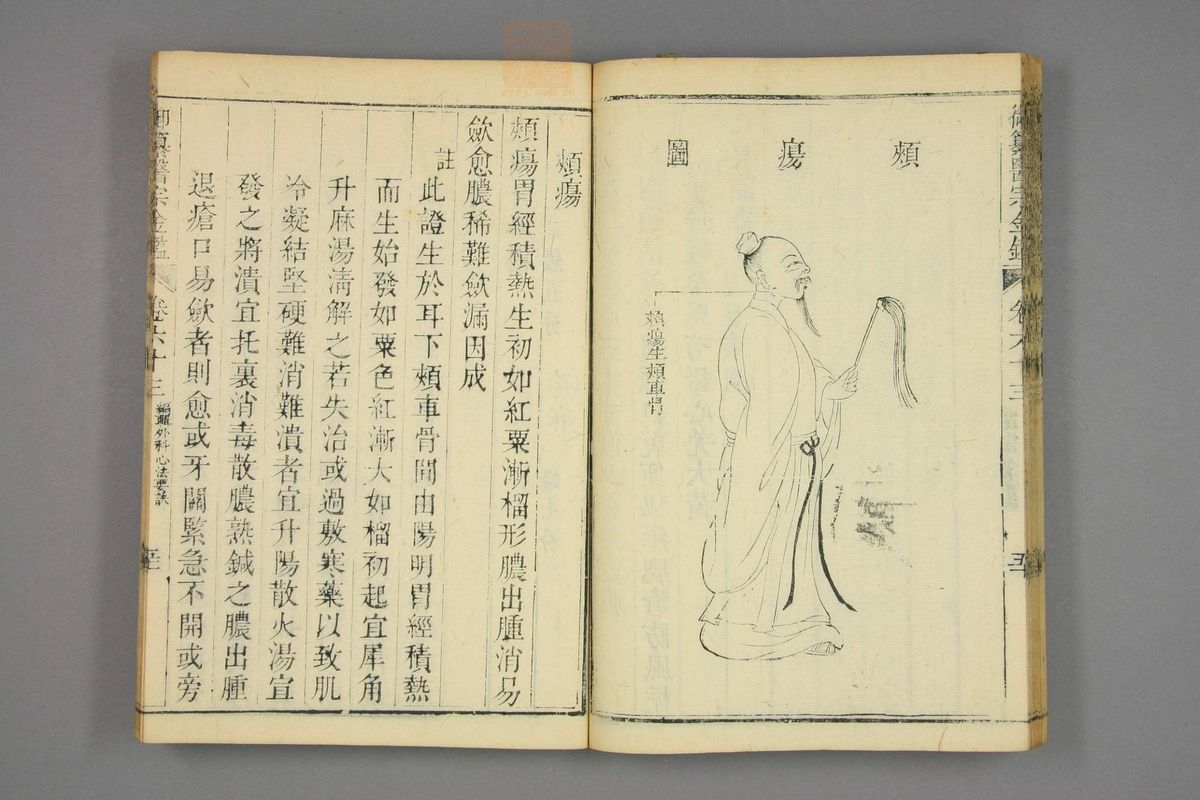 御纂醫宗金鑑
卷六十三
頰瘍圖
頰瘍生頰車骨
頰瘍
頰瘍胃經積熱生初如紅粟漸榴形膿出腫消易
歛愈膿稀難歛漏因成
註
此證生於耳下頰車骨間由陽明胃經積熱
而生始發如粟色紅漸大如榴初起宜犀角
升麻湯清解之若失治或過敷寒藥以致肌
冷凝結堅硬難消難潰者宜升陽散火湯宜
發之將潰宜托裏消毒散膿熟鍼之膿出腫
退瘡口易歛者則愈或牙關緊急不開或旁
御纂醫宗金鑑
卷六十三
編輯外科心法要訣